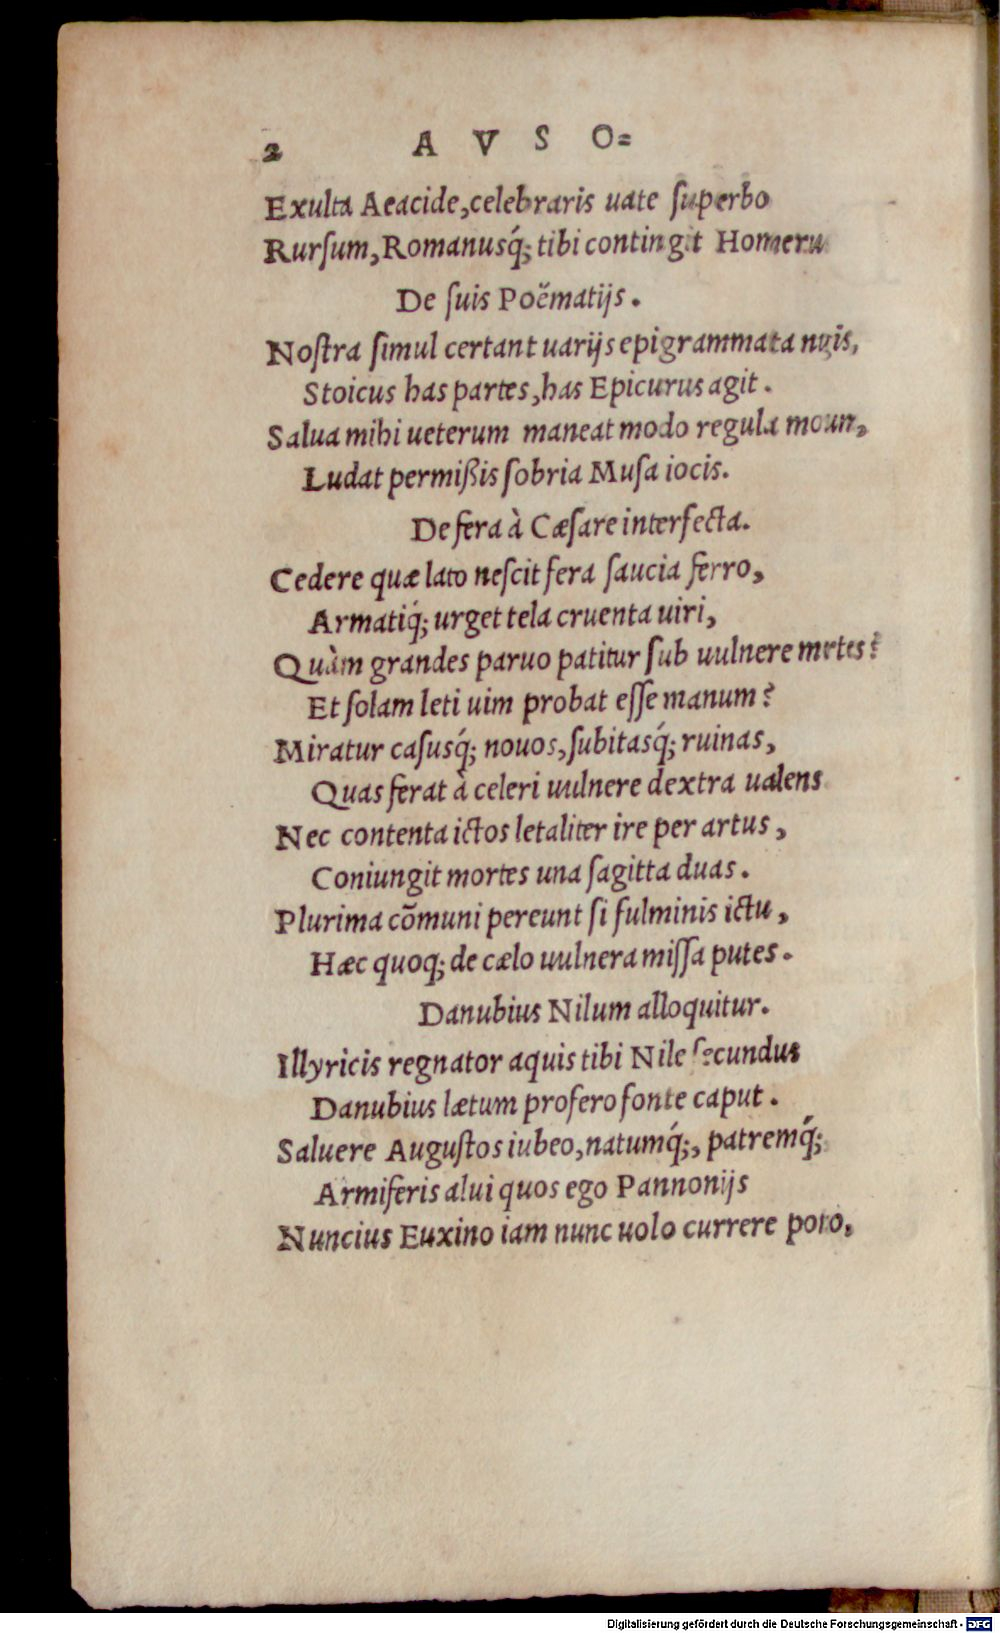 2 A V S O=
Exulta Aeacide, celebraris uate ſuperbo
Rurſum, Romanusq́; tibi contingit Homeru
De ſuis Poëmatijs.
Noſtra ſimul certant uarijs epigrammata nugis,
Stoicus has partes, has Epicurus agit.
Salua mihi ueterum maneat modo regula
Ludat permißis ſobria Muſa iocis.
De fera à Cæſare interfecta.
Cedere quæ lato neſcit fera ſaucia ferro,
Armatiq́; urget tela cruenta uiri,
Quàm grandes paruo patitur ſub uulnere mortes?
Et ſolam leti uim probat eſſe manum?
Miratur caſusq́; nouos, ſubitasq́; ruinas,
Quas ferat à celeri uulnere dextra ualens
Nec contenta ictos letaliter ire per artus,
Coniungit mortes una ſagitta duas.
Plurima cõmuni pereunt ſi fulminis ictu,
Hæc quoq; de cælo uulnera miſſa putes.
Danubius Nilum alloquitur.
Illyricis regnator aquis tibi Nile ſecundus
Danubius lætum profero fonte caput.
Saluere Auguſtos iubeo, natumq́;, patremq́;
Armiferis alui quos ego Pannonijs
Nuncius Euxino iam nunc uolo currere poto,
Digitalisierung gefördert durch die Deutsche Forschungsgemeinschaft - DFG